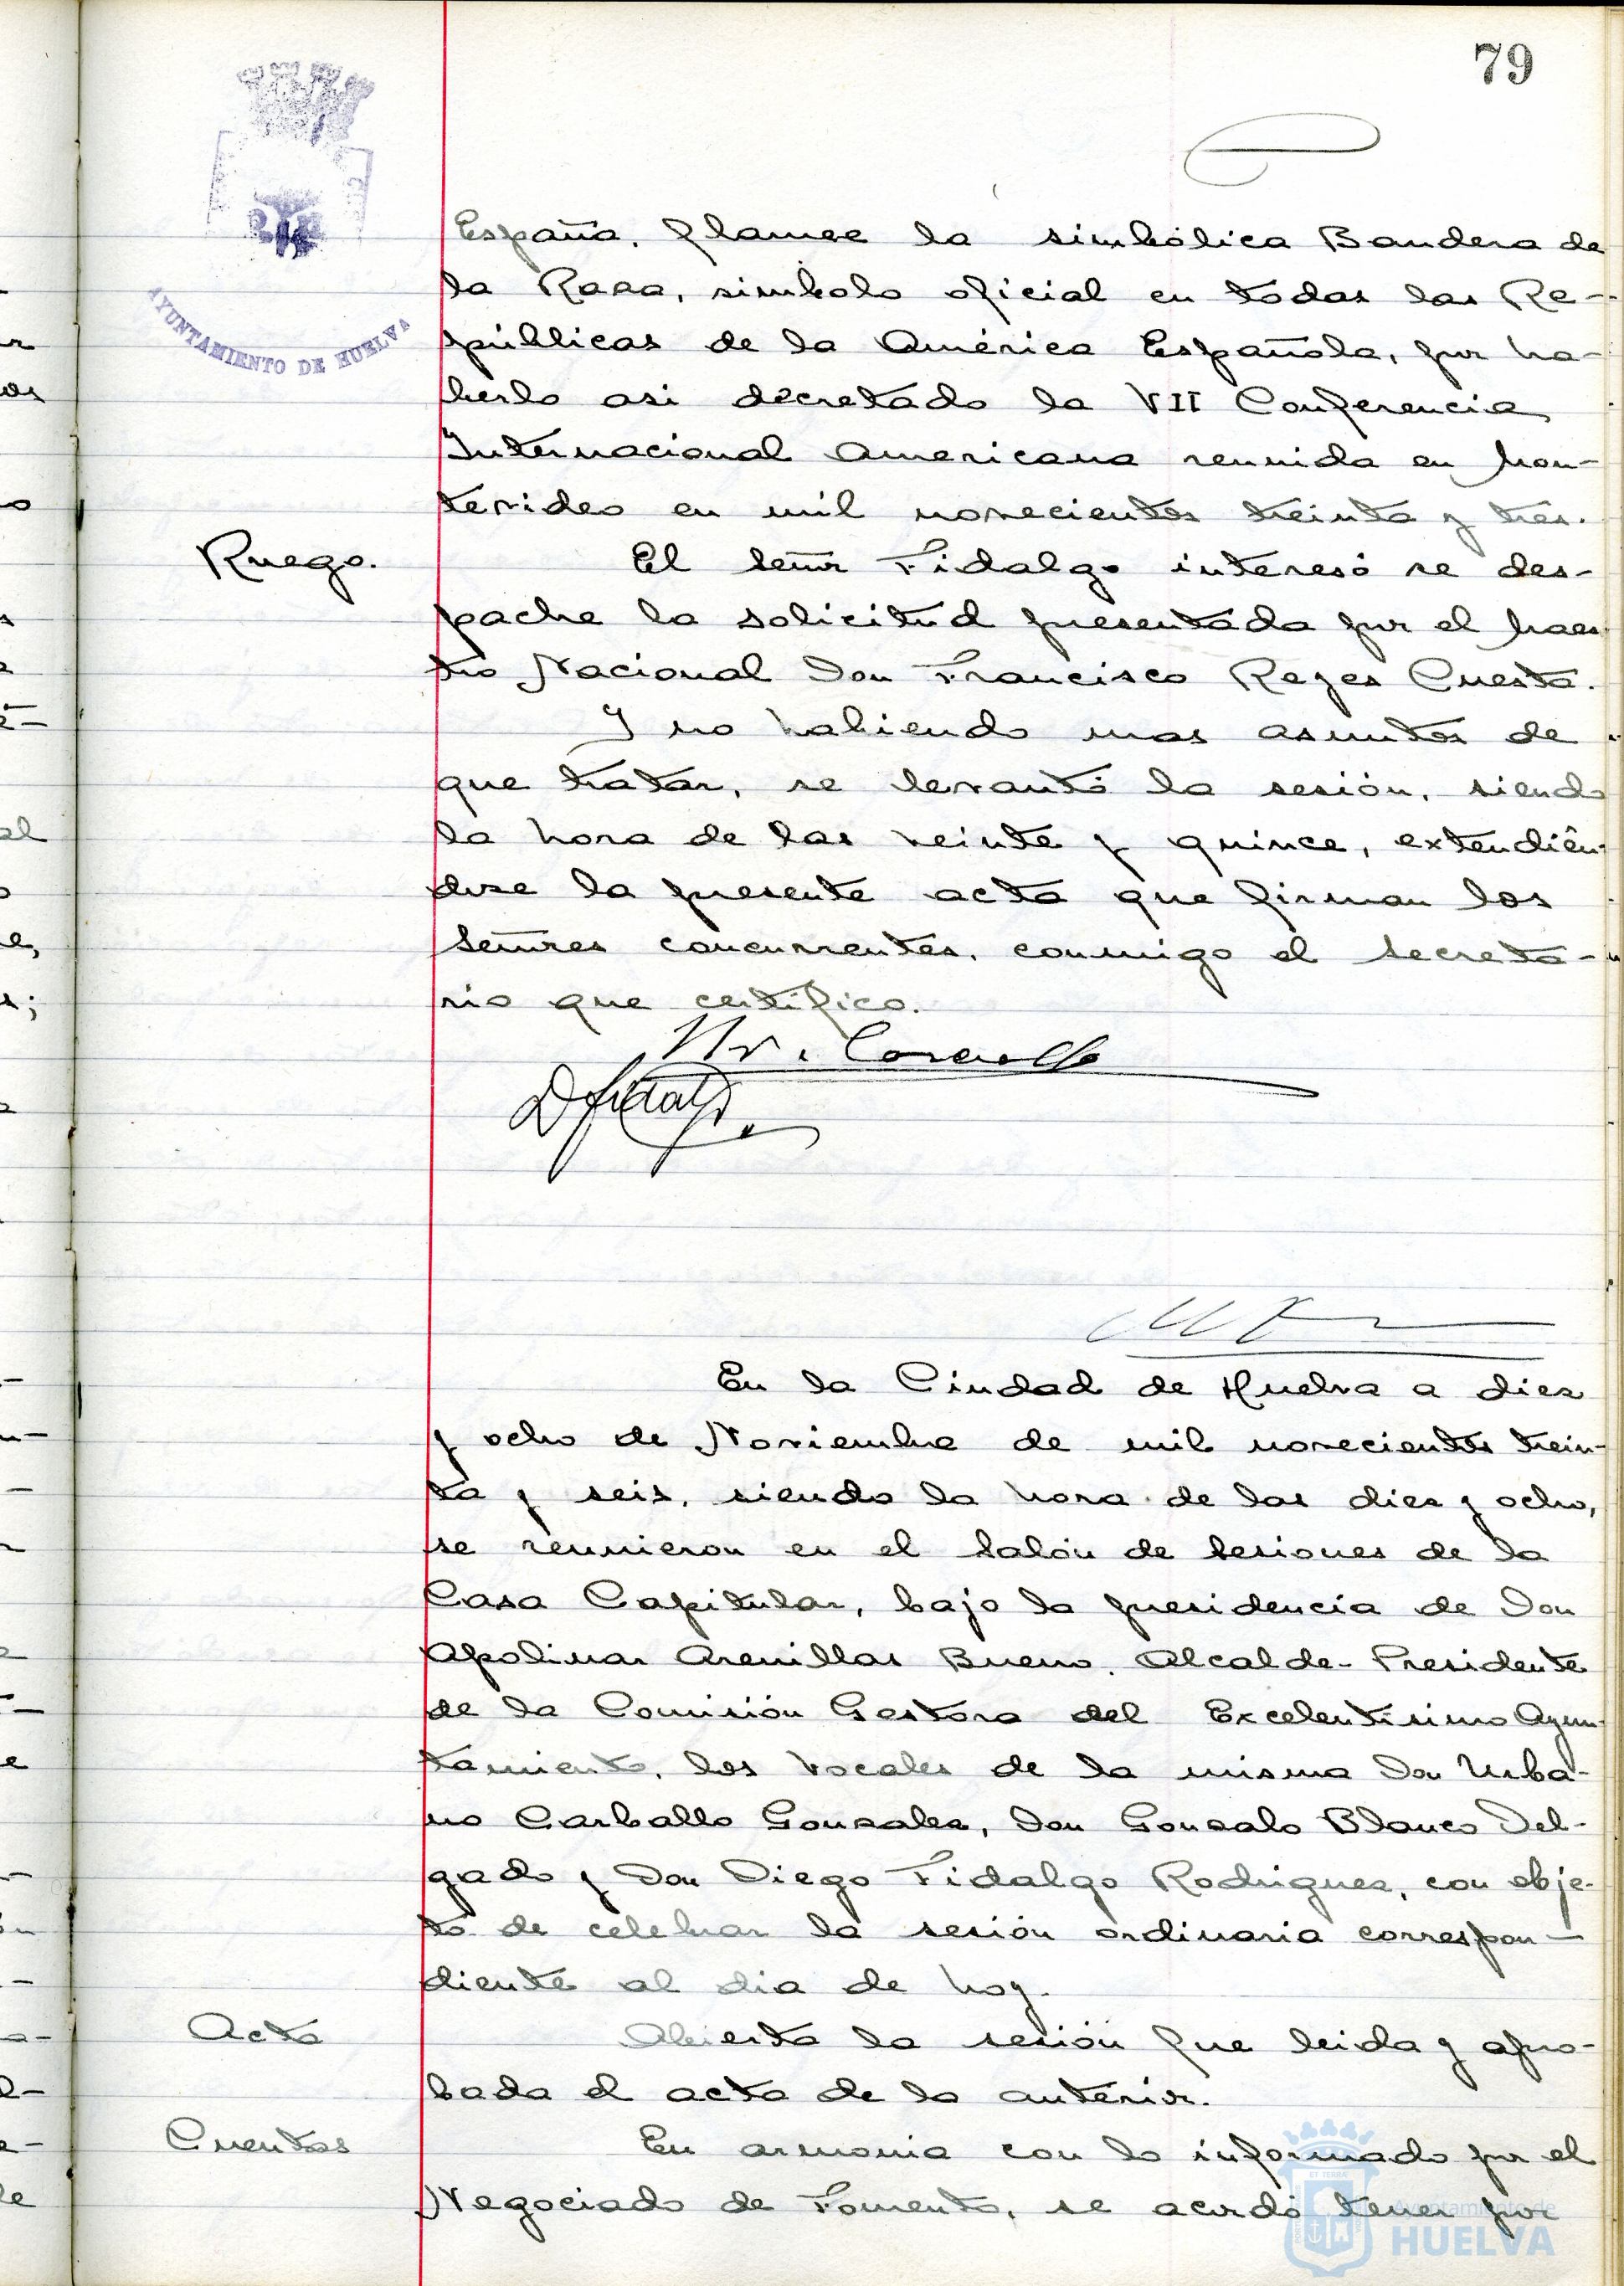 79
AYUNTAMIENTO DE HUELVA
España, flamee la simbólica Bandera de
la Raza, simbolo oficial en todas las Re-
públicas de la América Española, por ha-
berlo asi decretado la VII Conferencia
Internacional Americana reunida en Mon-
tevideo en mil novecientos treinta y tres.
Ruego.
El señor Fidalgo interesó se des-
pache la solicitud presentada por el Maes-
tro Nacional Don Francisco Reyes Cuesta.
Y no habiendo mas asuntos de
que tratar, se levantó la sesión, siendo
la hora de las veinte y quince, extendién-
dose la presente acta que firman los
Señores concurrentes, conmigo el Secreta-
rio que certifico.
D Fidalgo
En la Ciudad de Huelva a diez
y ocho de Noviembre de mil novecientos trein-
ta y seis, siendo la hora de las diez y ocho,
se reunieron en el Salón de Sesiones de la
Casa Capitular, bajo la presidencia de Don
Apolinar Arenillas Bueno, Alcalde-Presidente
de la Comisión Gestora del Excelentísimo Ayun-
tamiento, los Vocales de la misma Don Urba-
no Carballo Gonzalez, Don Gonzalo Blanco Del-
gado y Don Diego Fidalgo Rodriguez, con obje-
to de celebrar la sesión ordinaria correspon-
diente al dia de hoy.
Acta
Abierta la sesión fue leida y apro-
bada el acta de la anterior.
Cuentas
En armonia con lo informado por el
Negociado de Fomento, se acordó tener por
Ayuntamiento de
HUELVA